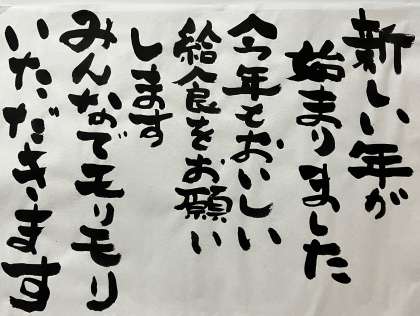 新しい年が
始まりました
今年もおいしい
給食をお願い
します
みんなでモリモリ
いただきます